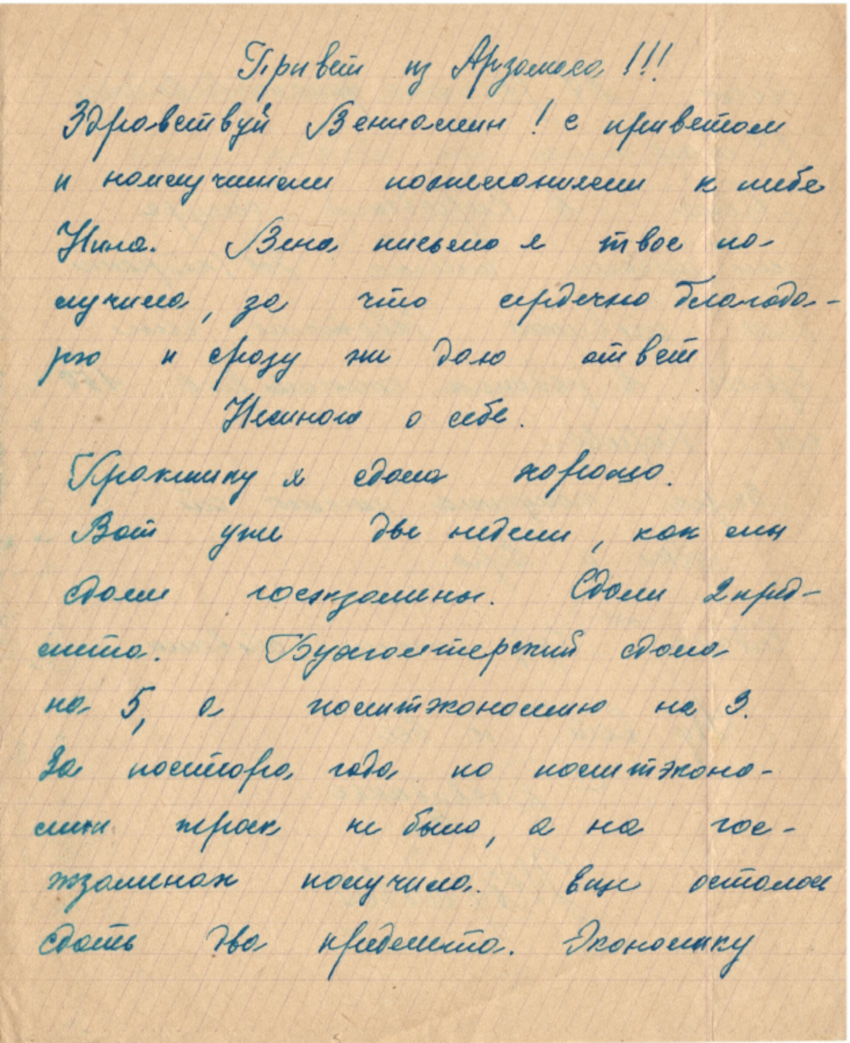 Привет из Арзамаса!!!
Здравствуй Вениамин! с приветом
и наилучшими пожеланиями к тебе
Нина. Вена письмо я твое по-
лучила, за что сердечно благода-
рю и сразу же даю ответ
Немного о себе.
Практику я сдала хорошо.
Вот уже две недели, как мы
сдали госэкзамены. Сдали 2 пред-
мета. Бухгалтерский сдала
на 5, а политэкономию на 3.
За полтора года по политэконо-
мии троек не было, а на гос-
экзаменах получила. Еще осталось
сдать два предмета. Экономику